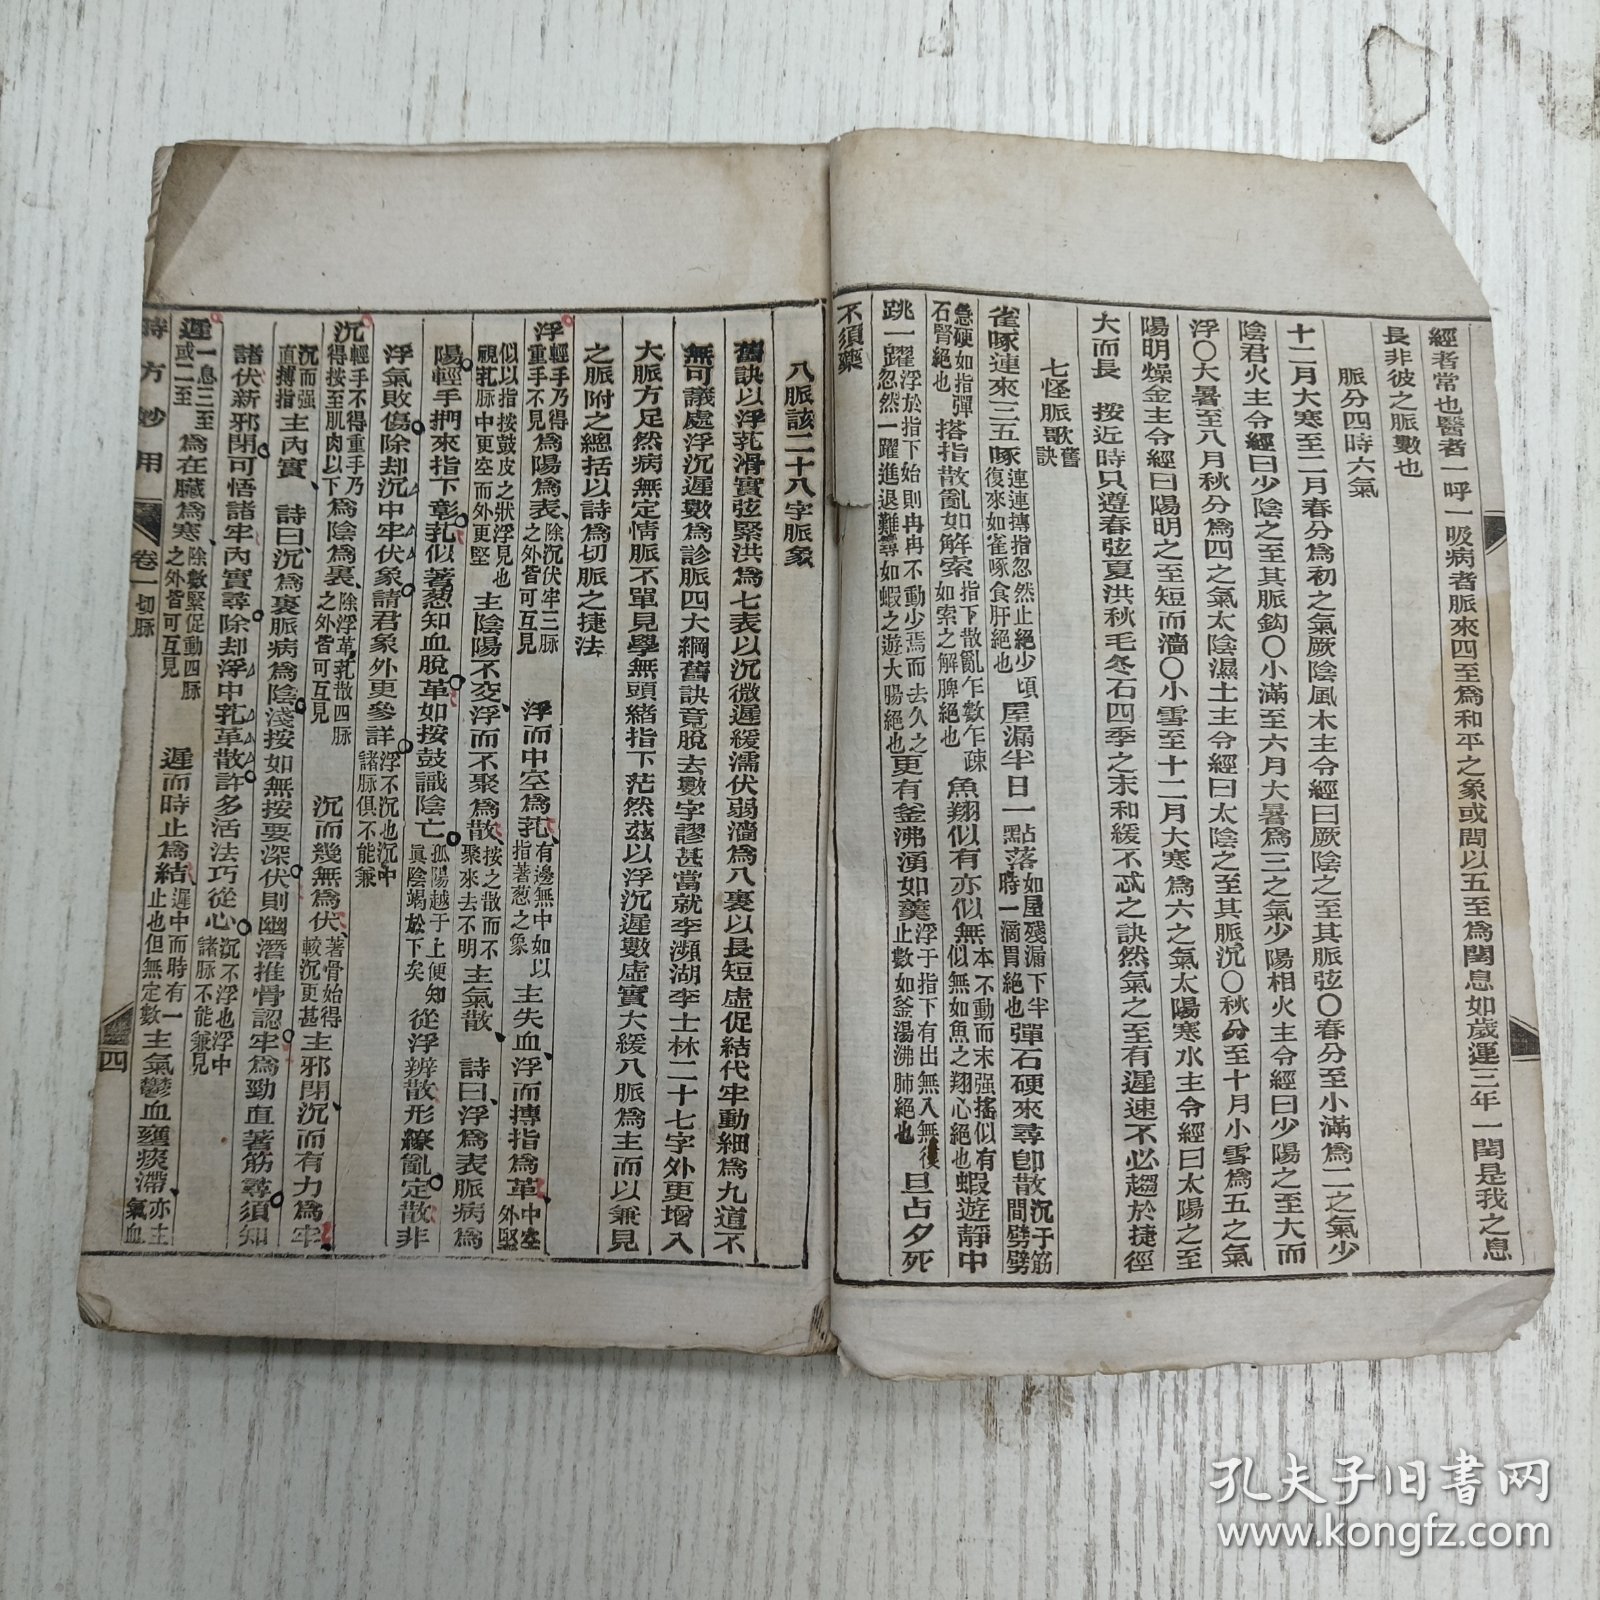 經者常也醫者一呼一吸病者脈來四至爲和平之象或間以五至爲閏息如歲運三年一閏是我之息
長非彼之脈數也
脈分四時六氣
十二月大寒至二月春分爲初之氣厥陰風木主令經曰厥陰之至其脈弦〇春分至小滿爲二之氣少
陰君火主令經曰少陰之至其脈鈎〇小滿至六月大暑爲三之氣少陽相火主令經曰少陽之至大而
浮〇大暑至八月秋分爲四之氣太陰濕土主令經曰太陰之至其脈沉〇秋分至十月小雪爲五之氣
陽明燥金主令經曰陽明之至短而濇〇小雪至十二月大寒爲六之氣太陽寒水主令經曰太陽之至
大而長 按近時只遵春弦夏洪秋毛冬石四季之末和緩不忒之訣然氣之至有遲速不必趨於捷徑
七怪脈歌舊訣
雀啄連來三五啄連連搏指忽然止絕少頃復來如雀啄食肝絕也 屋漏半日一點落如屋殘漏下半時一滴胃絕也 彈石硬來尋卽散沉于筋間劈劈
急硬如指彈石腎絕也 搭指散亂如解索指下散亂乍數乍疎如索之解脾絕也 魚翔似有亦似無本不動而末强搖似有似無如魚之翔心絕也 蝦遊靜中
跳一躍浮於指下始則冉冉不動少焉而去久之忽然一躍進退難尋如蝦之遊大腸絕也 更有釜沸湧如羹浮于指下有出無入無復止數如釜湯沸肺絕也 旦占夕死
不須藥
八脈該二十八字脈象
舊訣以浮芤滑實弦緊洪爲七表以沉微遲緩濡伏弱濇爲八裏以長短虛促結代牢動細爲九道不
無可議處浮沉遲數爲診脈四大綱舊訣竟脫去數字謬甚當就李瀕湖李士林二十七字外更增入
大脈方足然病無定情脈不單見學無頭緒指下茫然茲以浮沉遲數虛實大緩八脈爲主而以兼見
之脈附之總括以詩爲切脈之捷法
浮輕手乃得重手不見爲陽爲表、除沉伏牢三脈之外皆可互見 浮而中空爲芤、有邊無中如以指著葱之象 主失血、浮而搏指爲革、中空外堅
似以指按鼓皮之狀浮見也視芤脈中更空而外更堅 主陰陽不交、浮而不聚爲散、按之散而不聚來去不明 主氣散、 詩曰、浮爲表脈病爲
陽、輕手捫來指下彰、芤似著葱知血脫、革如按鼓識陰亡、孤陽越于上便知眞陰竭於下矣 從浮辨散形繚亂、定散非
浮氣敗傷、除却沉中牢伏象、請君象外更參詳浮不沉也沉中諸脈俱不能兼
沉輕手不得重手乃得按至肌肉以下爲陰爲裏、除浮革芤散四脈之外皆可互見 沉而幾無爲伏、著骨始得較沉更甚 主邪閉、沉而有力爲牢、
沉而强直搏指 主內實、 詩曰、沉爲裏脈病爲陰、淺按如無按要深、伏則幽潛推骨認、牢爲勁直著筋尋、須知
諸伏新邪閉、可悟諸牢內實尋、除却浮中芤革散、許多活法巧從心沉不浮也浮中諸脈不能兼見
遲一息三至或二至 爲在臟爲寒、除數緊促動四脈之外皆可互見 遲而時止爲結、遲中而時有一止也但無定數 主氣鬱血壅痰滯、亦主氣血
時方妙用 卷一 切脉 四
孔夫子旧书网
www.kongfz.com